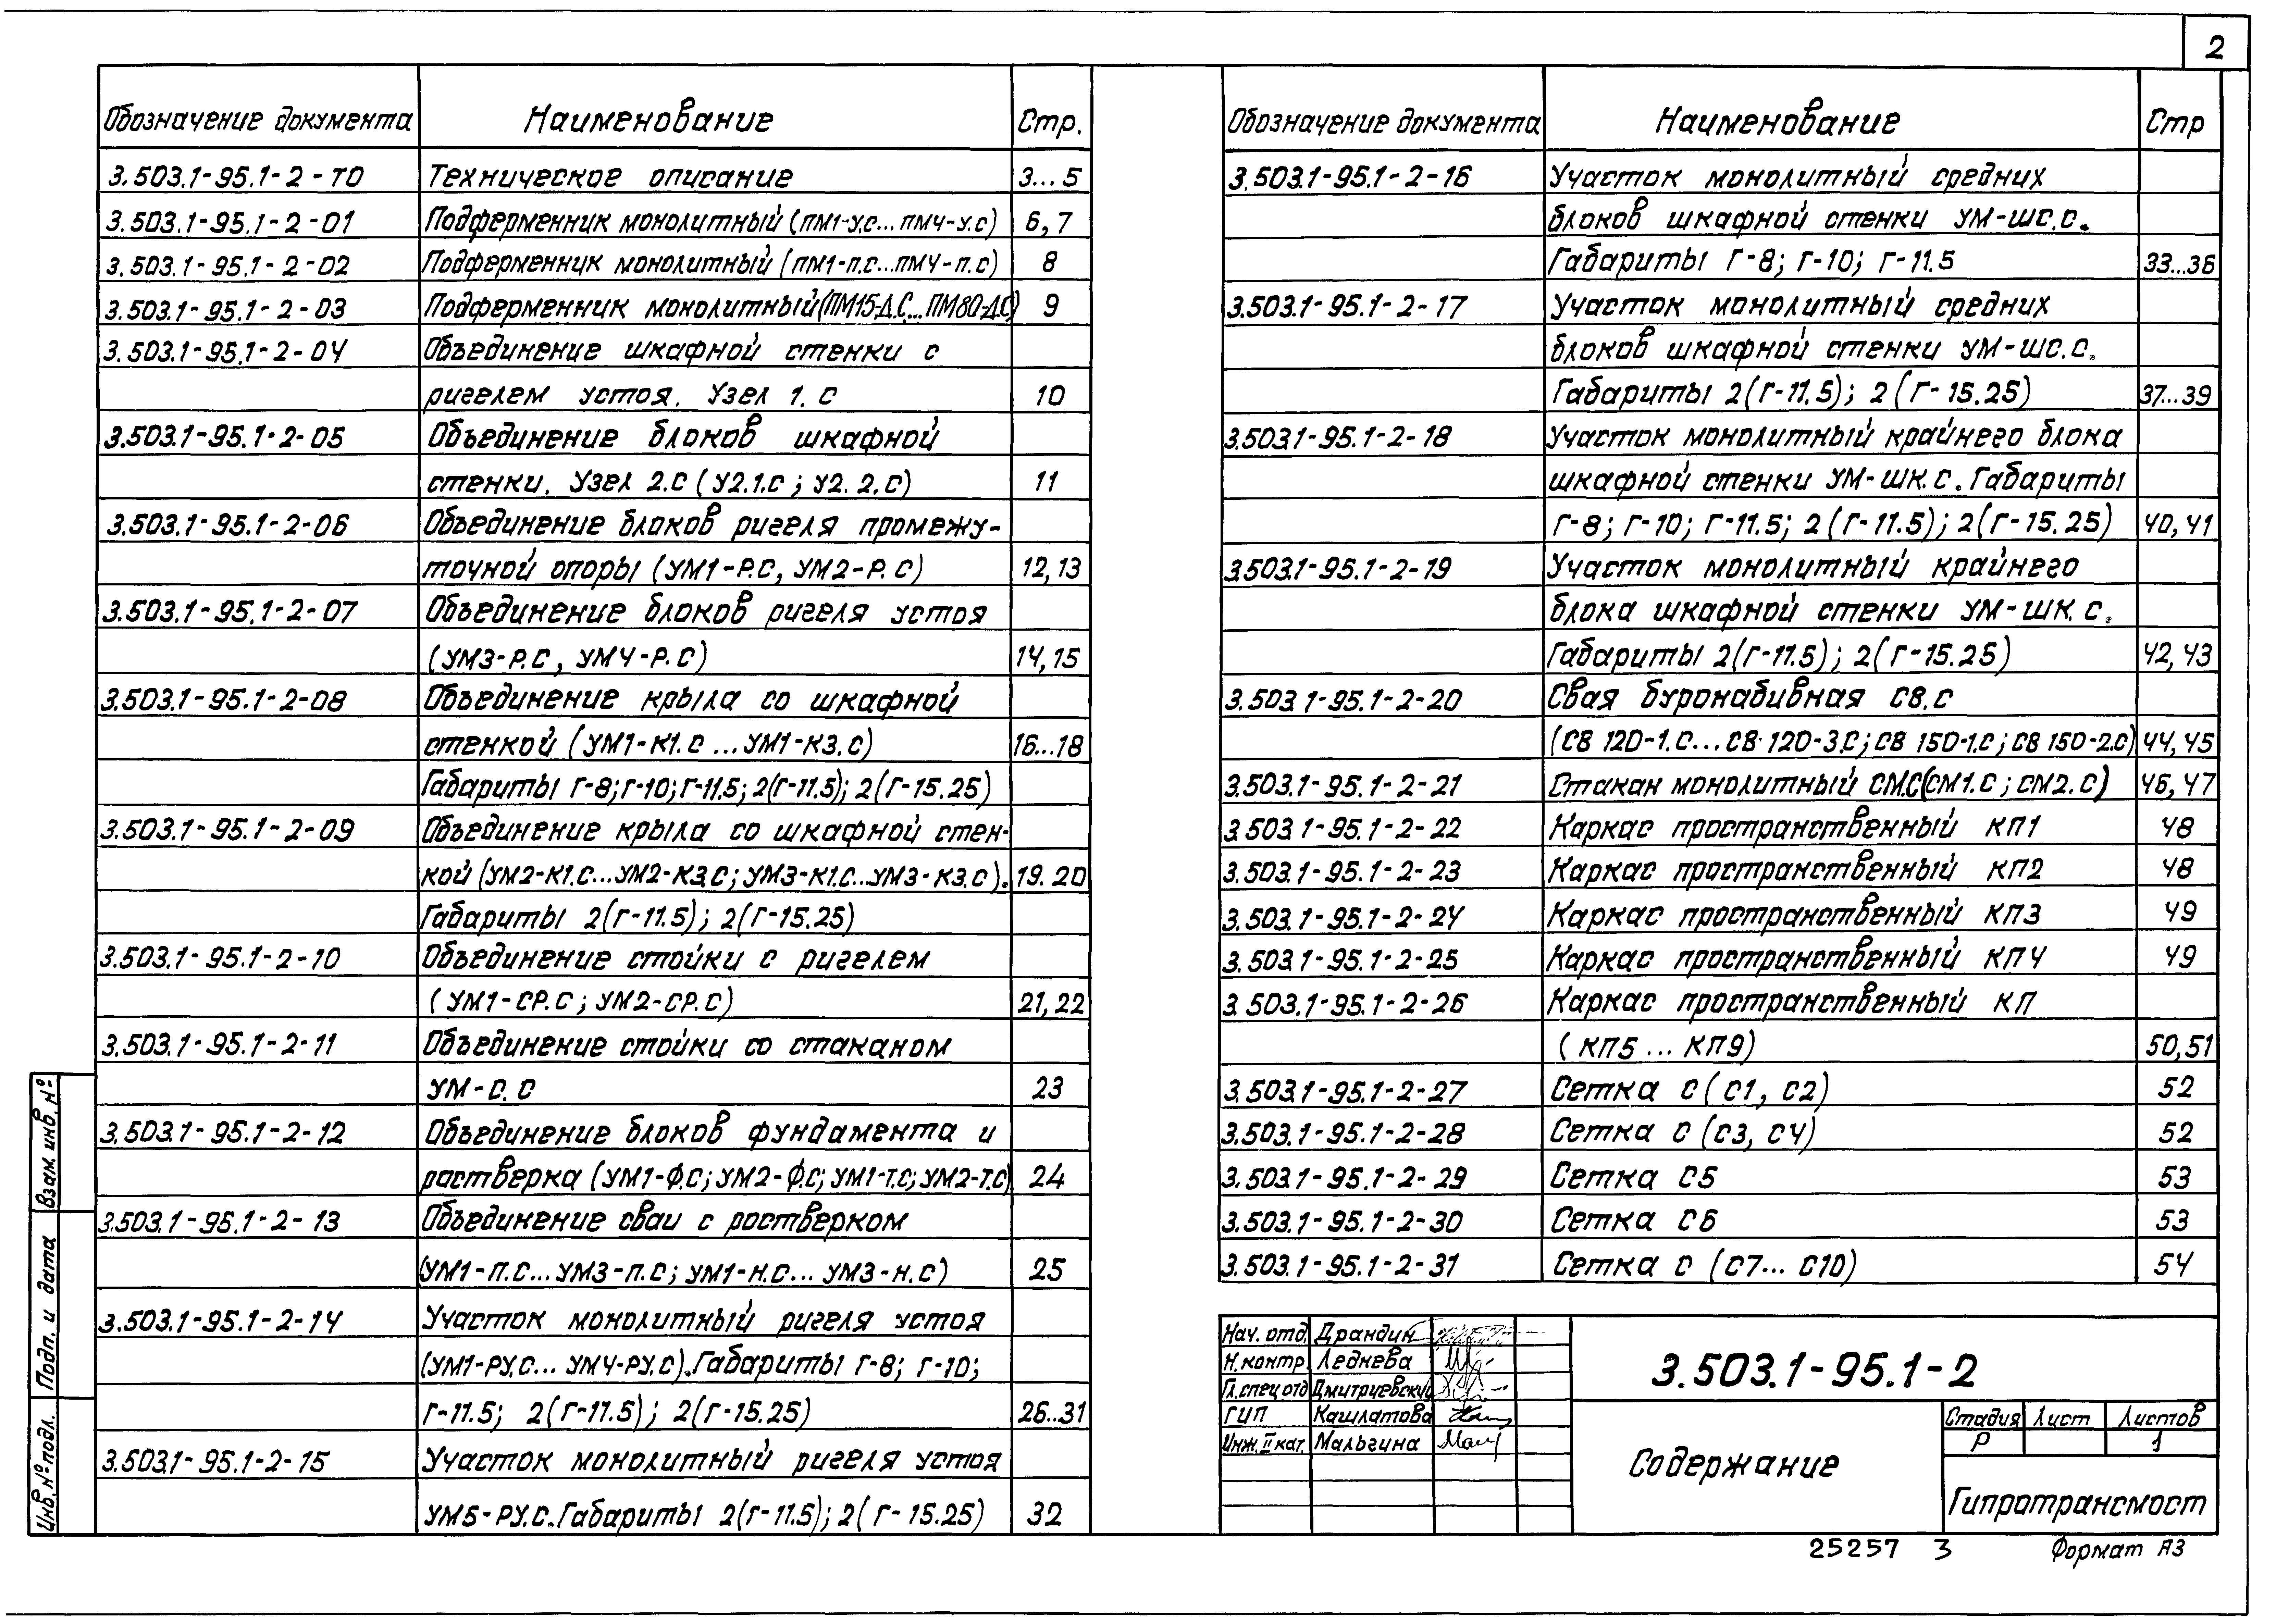 2
Обозначение документа Наименование Стр.
3.503.1-95.1-2-ТО Техническое описание 3...5
3.503.1-95.1-2-01 Подферменник монолитный (ПМ1-У.С...ПМ4-У.С) 6,7
3.503.1-95.1-2-02 Подферменник монолитный (ПМ1-П.С...ПМ4-П.С) 8
3.503.1-95.1-2-03 Подферменник монолитный (ПМ15-Д.С...ПМ80-Д.С) 9
3.503.1-95.1-2-04 Объединение шкафной стенки с
ригелем устоя. Узел 1.С 10
3.503.1-95.1-2-05 Объединение блоков шкафной
стенки. Узел 2.С (У2.1.С; У2.2.С) 11
3.503.1-95.1-2-06 Объединение блоков ригеля промежу-
точной опоры (УМ1-Р.С, УМ2-Р.С) 12,13
3.503.1-95.1-2-07 Объединение блоков ригеля устоя
(УМ3-Р.С, УМ4-Р.С) 14,15
3.503.1-95.1-2-08 Объединение крыла со шкафной
стенкой (УМ1-К1.С...УМ1-К3.С) 16...18
Габариты Г-8; Г-10; Г-11.5; 2(Г-11.5); 2(Г-15.25)
3.503.1-95.1-2-09 Объединение крыла со шкафной стен-
кой (УМ2-К1.С...УМ2-К3.С; УМ3-К1.С...УМ3-К3.С). 19.20
Габариты 2(Г-11.5); 2(Г-15.25)
3.503.1-95.1-2-10 Объединение стойки с ригелем
(УМ1-СР.С; УМ2-СР.С) 21,22
3.503.1-95.1-2-11 Объединение стойки со стаканом
УМ-С.С 23
3.503.1-95.1-2-12 Объединение блоков фундамента и
растверка (УМ1-Ф.С; УМ2-Ф.С; УМ1-Т.С; УМ2-Т.С) 24
3.503.1-95.1-2-13 Объединение сваи с ростверком
(УМ1-П.С...УМ3-П.С; УМ1-Н.С...УМ3-Н.С) 25
3.503.1-95.1-2-14 Участок монолитный ригеля устоя
(УМ1-РУ.С...УМ4-РУ.С). Габариты Г-8; Г-10;
Г-11.5; 2(Г-11.5); 2(Г-15.25) 26..31
3.503.1-95.1-2-15 Участок монолитный ригеля устоя
УМ5-РУ.С. Габариты 2(Г-11.5); 2(Г-15.25) 32
Обозначение документа Наименование Стр
3.503.1-95.1-2-16 Участок монолитный средних
блоков шкафной стенки УМ-ШС.С.
Габариты Г-8; Г-10; Г-11.5 33...36
3.503.1-95.1-2-17 Участок монолитный средних
блоков шкафной стенки УМ-ШС.С.
Габариты 2(Г-11.5); 2(Г-15.25) 37...39
3.503.1-95.1-2-18 Участок монолитный крайнего блока
шкафной стенки УМ-ШК.С. Габариты
Г-8; Г-10; Г-11.5; 2(Г-11.5); 2(Г-15.25) 40,41
3.503.1-95.1-2-19 Участок монолитный крайнего
блока шкафной стенки УМ-ШК.С.
Габариты 2(Г-11.5); 2(Г-15.25) 42,43
3.503.1-95.1-2-20 Свая буронабивная СВ.С
(СВ 120-1.С...СВ 120-3.С; СВ 150-1.С; СВ 150-2.С) 44,45
3.503.1-95.1-2-21 Стакан монолитный СМ.С (СМ1.С; СМ2.С) 46,47
3.503.1-95.1-2-22 Каркас пространственный КП1 48
3.503.1-95.1-2-23 Каркас пространственный КП2 48
3.503.1-95.1-2-24 Каркас пространственный КП3 49
3.503.1-95.1-2-25 Каркас пространственный КП4 49
3.503.1-95.1-2-26 Каркас пространственный КП
(КП5...КП9) 50,51
3.503.1-95.1-2-27 Сетка С (С1, С2) 52
3.503.1-95.1-2-28 Сетка С (С3, С4) 52
3.503.1-95.1-2-29 Сетка С5 53
3.503.1-95.1-2-30 Сетка С6 53
3.503.1-95.1-2-31 Сетка С (С7...С10) 54
Нач. отд Драндин
Н.контр. Леднева
Гл.спец отд Дмитриевский
ГИП Кашлатова
Инж. II кат. Мальгина
3.503.1-95.1-2
Содержание
Стадия Лист Листов
Р 1
Гипротрансмост
25257 3 Формат А3
Взам. инв. №
Подп. и дата
Инв. № подл.